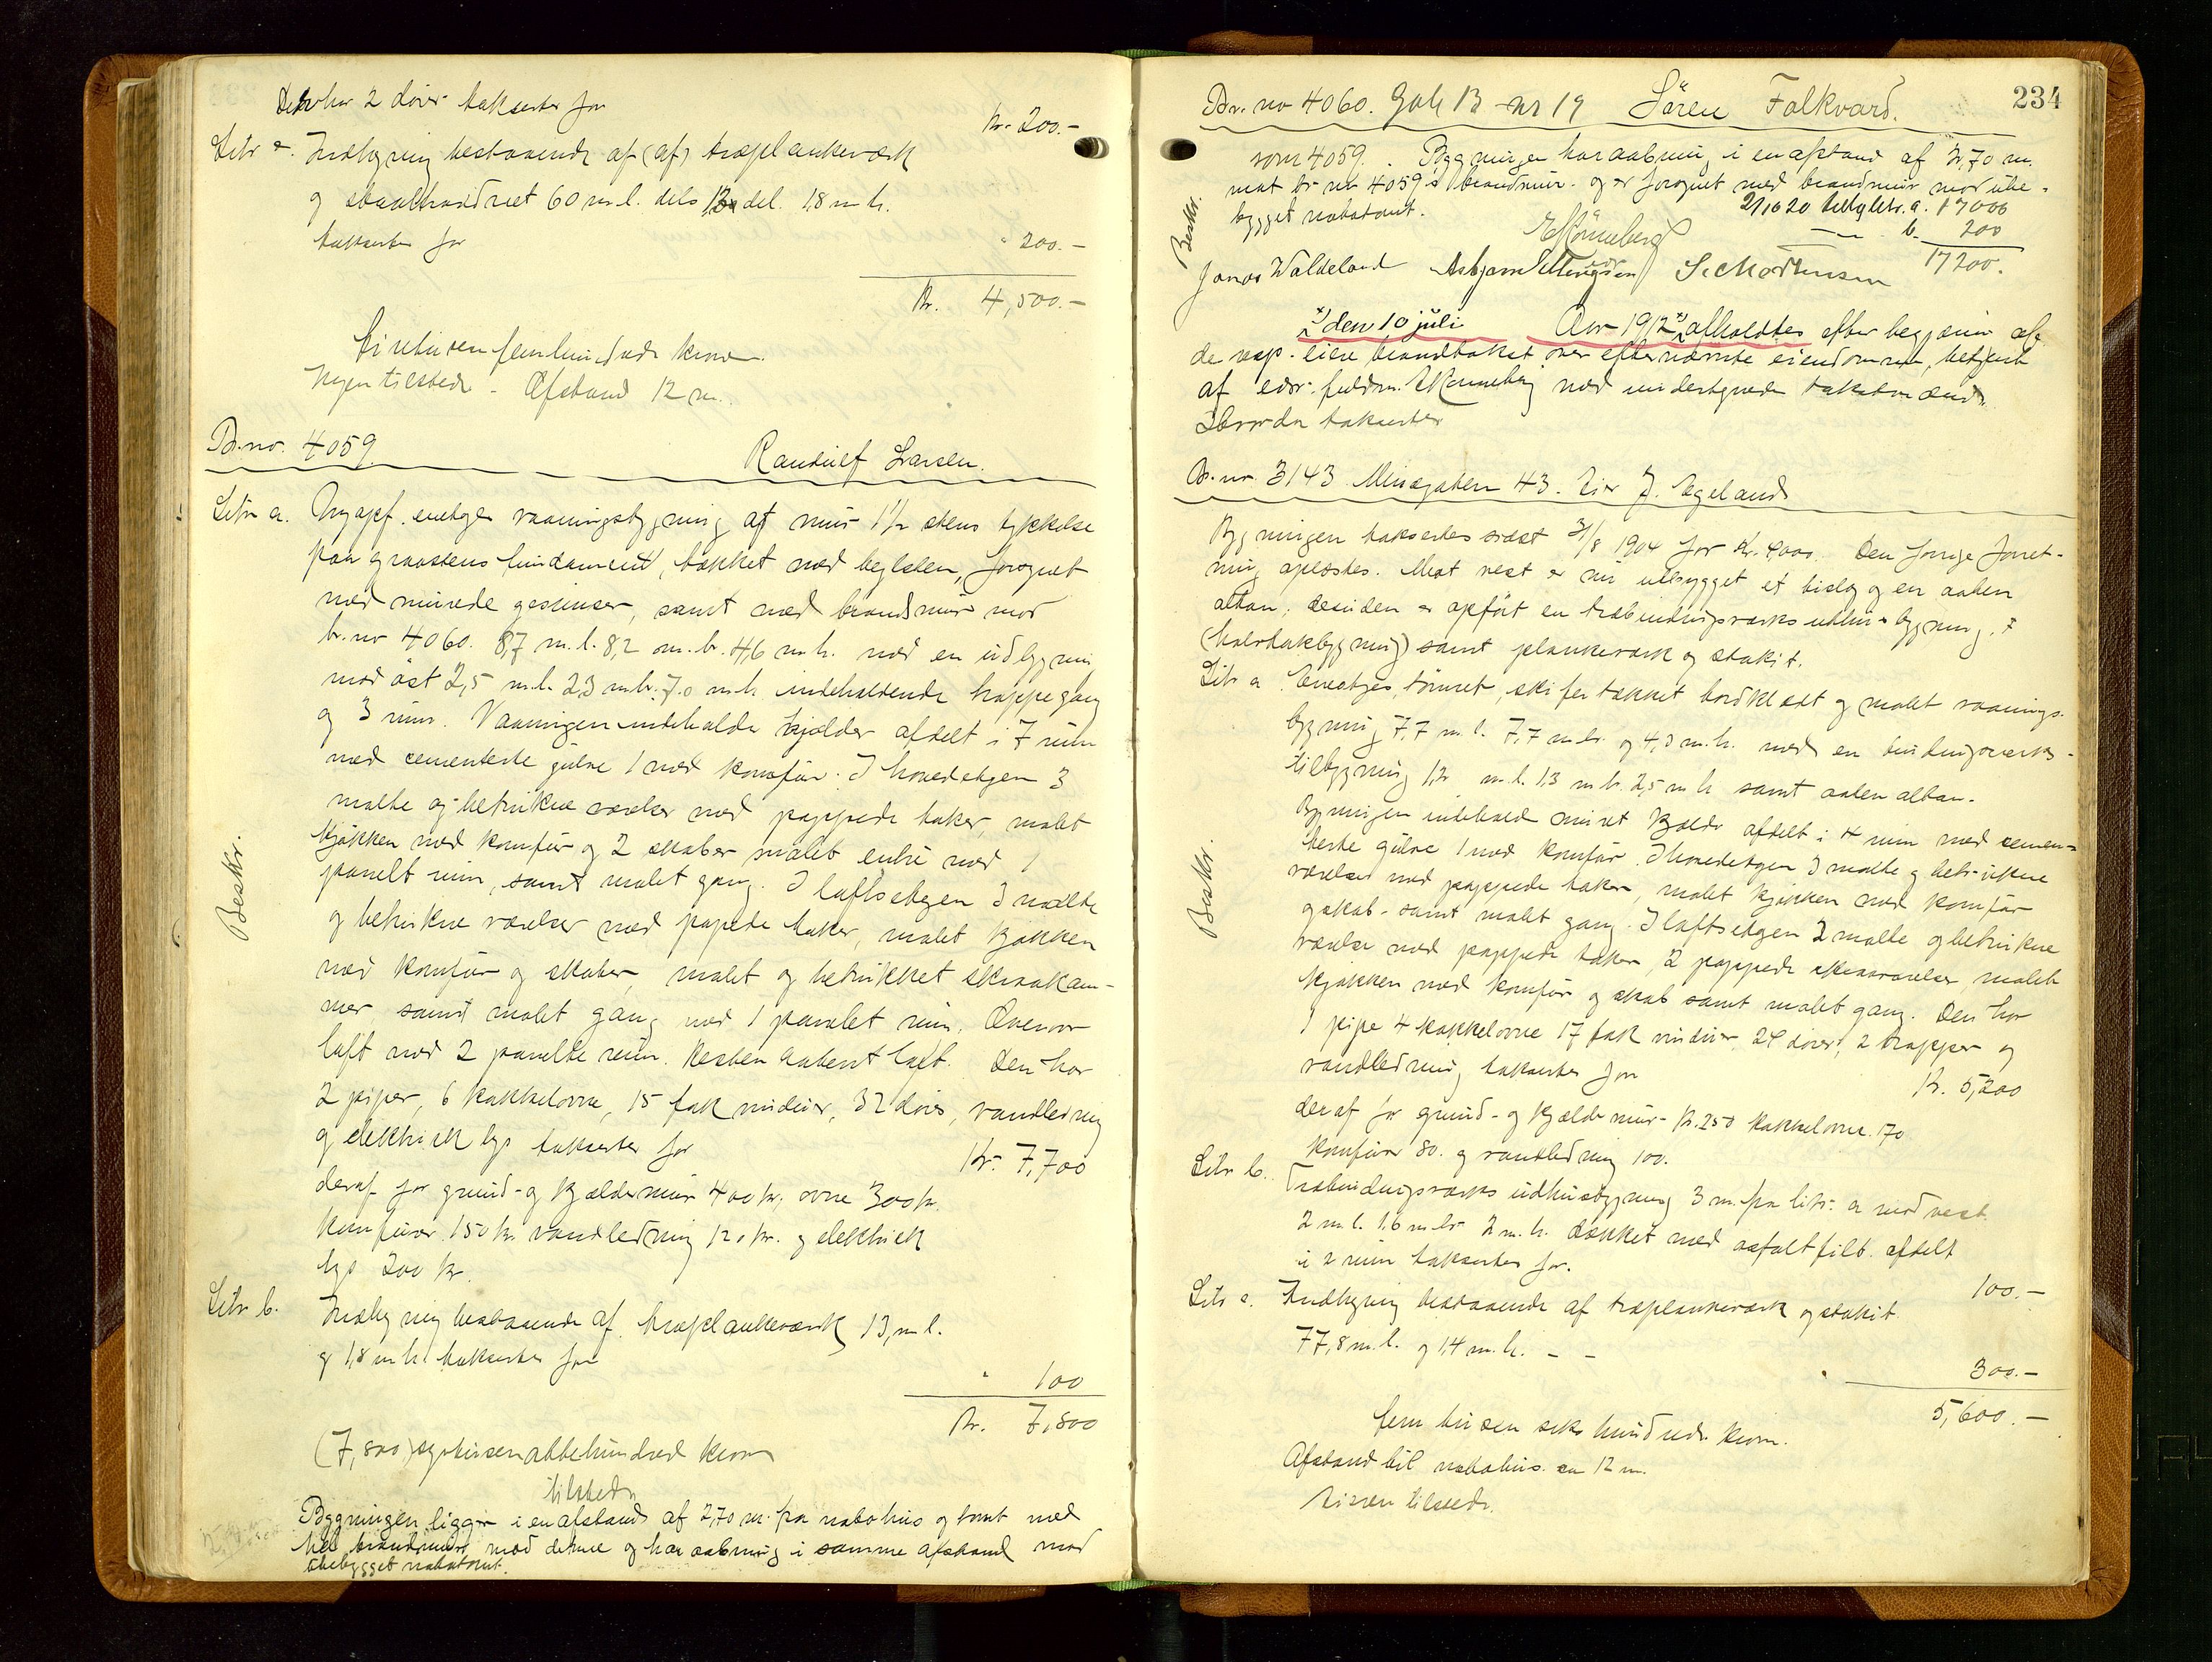 Den har 2 dører takseres for
Kr. 200.-
Litr c. Indhegning bestaaende af (af) træplankeværk
og staaltraadnet 60 m. l. dels del. 1,8 m h.
takseres for
" 200.-
Kr. 4,500.-
firetusenfemhundrede kroner.
Ingen tilstede - Afstand 12 m.
Br. no. 4059 Randulf Larsen.
Litr a. Nyopf. enetages vaaningsbygning af mur 1½ stens tykkelse
paa graastens fundament, tækket med teglsten, forsynet
med murede gesimser, samt med brandmur mod
br. no 4060. 8,7 m. l. 8,2 m. br. 4,6 m h. med en udbygning
mod øst 2,5 m. l. 2,3 m br. 7,0 m h indeholdende trappegang
og 3 rum. Vaaningen indeholder kjælder afdelt i 7 rum
med cementerte gulve 1 med komfur. I hovedetagen 3
malte og betrukne værelser med pappede taker, malet
kjøkken med komfur og 2 skaber malet entré med 1
panelt rum, samt malet gang. I loftsetagen 3 malte
og betrukne værelser med papede taker, malet kjøkken
med komfur og skaber, malet og betrukket skraakam-
mer samt malet gang med 1 panelet rum. Ovenover
loft med 2 panelte rum. Resten aabent loft. Den har
2 piper, 6 kakkelovne, 15 fak vinduer, 32 døre, vandledning
og elektrisk lys takseres for
Kr. 7,700
deraf for grund- og kjældermur 400 kr, ovne 300 kr.
komfurer 150 kr. vandledning 120 kr. og elektrisk
lys 200 kr.
Beskr.
Litr b. Indhegning bestaaende af træplankeværk 13, m l.
og 1,8 m h. takseres for
" 100
Kr. 7,800
(7,800) syvtusenottehundred kroner
tilstede
Bygningen ligger i en afstand af 2,70 m. fra nabohus og tomt med
hel brandmur mod denne og har aabning i samme afstand mod
ubebygget nabotomt.
234
Br. no 4060. Søren Falkvard.
som 4059. Bygningen har aabning i en afstand af 2,70 m.
mot br. no 4059s brandmur. og er forsynet med brandmur mod ube-
bygget nabotomt.
Beskr.
a. 17000
b. 200
17200.
E Rønneberg
Jonas Waldeland Asbjørn Ellingsen S. Mortensen
x) den 10 juli Aar 1912 x) afholdtes efter begjæring af
de resp. eiere brandtakst over efternævnte eiendomme, betjent
af edsv. fuldm. E Rønneberg med undertegnede takstmænd
Hvorda takseres
Br. no. 3143 Misjonsgaten 43. Eier J. Egeland
Bygningen takseredes sidst 3/8 1904 for kr. 4000. Den forrige forret-
ning oplæstes. Mot vest er nu utbygget et bislag og en aapen
altan; desuden er opført en træbindingsværks udhusbygning
(halvtakbygning) samt plankeværk og stakit.
Litr a. Enetages, tømret, skifertækket bordklædt og malet vaanings-
bygning 7,7 m. l. 7,7 m br. og 4,3 m. h. med en bindingsværks-
tilbygning 1,2 m. l. 1,3 m br. 2,5 m h samt aaben altan.
Bygningen indehold muret kjælder afdelt i 4 rum med cemen-
terte gulve 1 med komfur. I hovedetagen 3 malte og betrukne
værelser med pappede taker, malet kjøkken med komfur
og skab - samt malet gang. I loftsetagen 2 malte og betrukne
værelse med pappede taker 2 pappede skraaværelser malet
kjøkken med komfur og skab samt malet gang. Den har
1 pipe 4 kakkelovne 17 fak vinduer 24 dører, 2 trapper og
vandledning takseres for
Kr. 5,200
deraf for grund- og kjældermur kr. 250 kakkelovne 170
komfurer 80. og vandledning 100.
Beskr.
Litr b. Træbindingsværks udhusbygning 3 m. fra litr. a mod vest.
2 m l. 1,6 m br 2 m. h. dækket med asfaltfilt. afdelt
i 2 rum takseres for.
100.-
Litr c. Indhegning bestaaende af træplankeværk og stakit.
77,8 m. l. og 1,4 m. h. - -
" 300.-
5,600.-
fem tusen seks hundrede kroner.
Afstand til nabohus. ca 12 m.
Eieren tilstede.